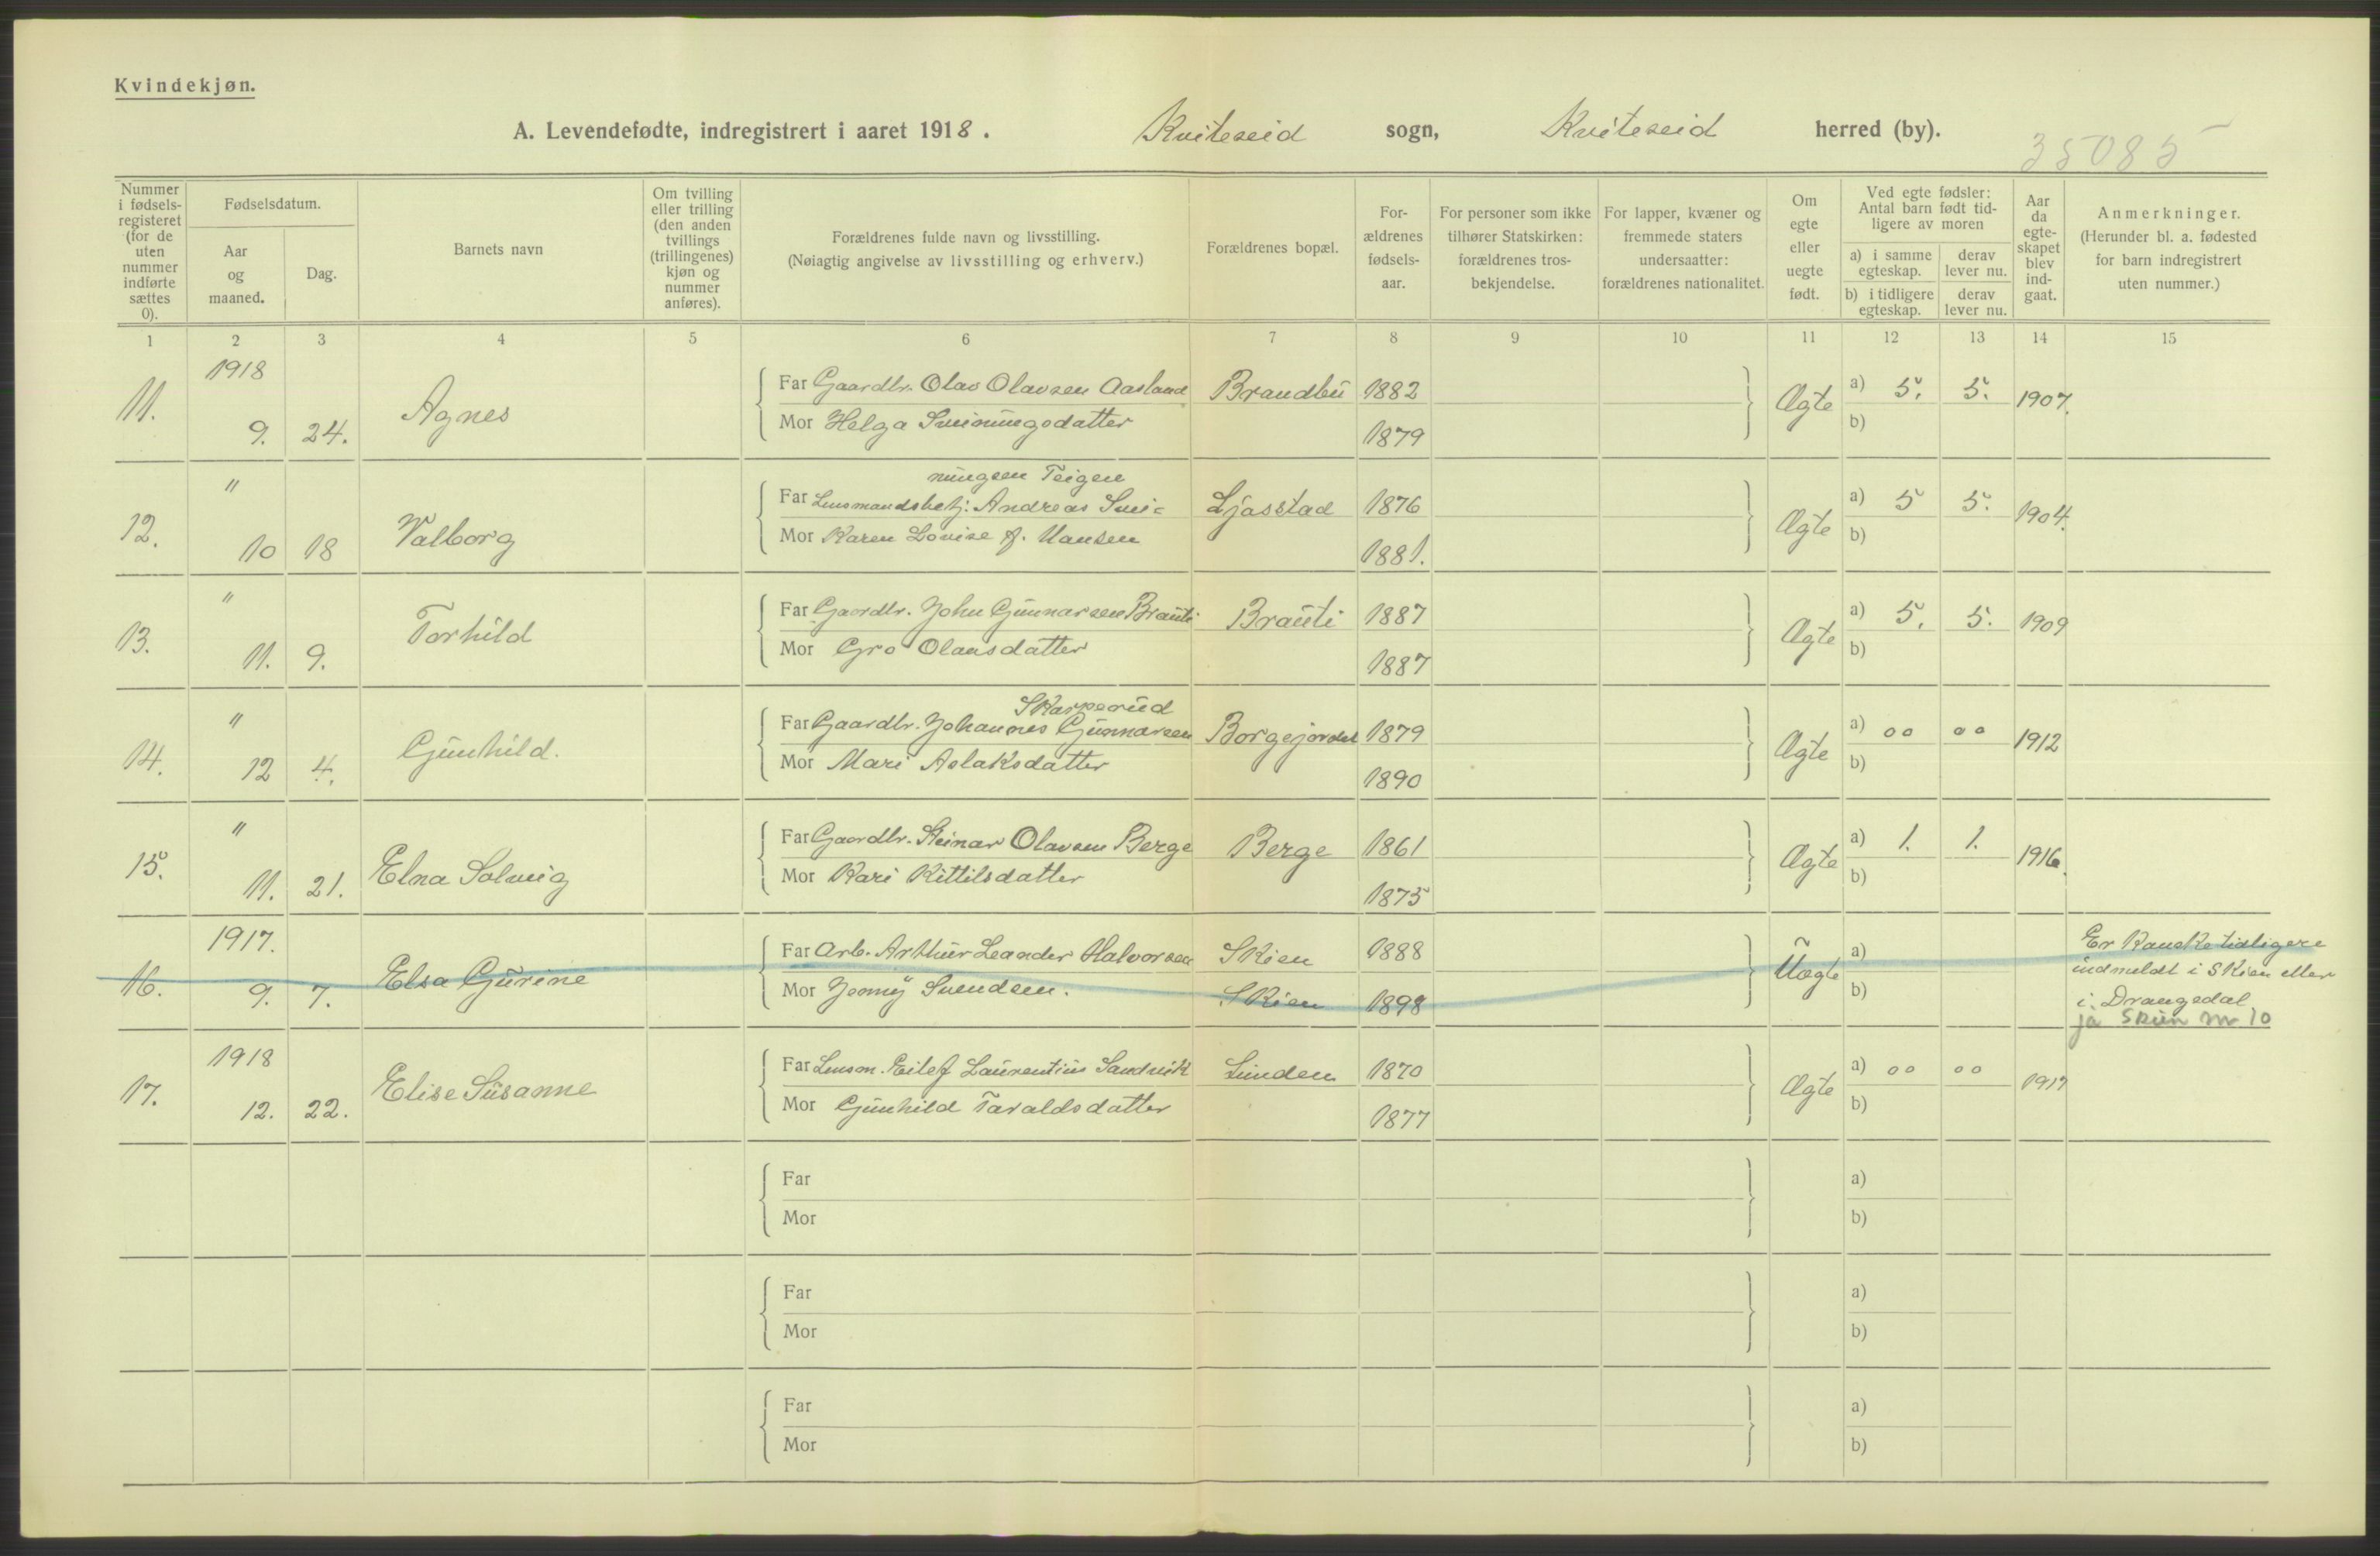 Kvindekjøn.
A. Levendefødte, indregistrert i aaret 1918. Kviteseid sogn, Kviteseid herred (by).
35085
Nummer i fødsels-registeret (for de uten nummer indførte sættes 0).
Fødselsdatum.
Aar og maaned.
Dag.
Barnets navn
Om tvilling eller trilling (den anden tvillings (trillingenes) kjøn og nummer anføres).
Forældrenes fulde navn og livsstilling.
(Nøiagtig angivelse av livsstilling og erhverv.)
Forældrenes bopæl.
For-ældrenes fødsels-aar.
For personer som ikke tilhører Statskirken: forældrenes tros-bekjendelse.
For lapper, kvæner og fremmede staters undersaatter: forældrenes nationalitet.
Om egte eller uegte født.
Ved egte fødsler: Antal barn født tid-ligere av moren
a) i samme egteskap.
derav lever nu.
b) i tidligere egteskap.
derav lever nu.
Aar da egte-skapet blev ind-gaat.
Anmerkninger.
(Herunder bl. a. fødested for barn indregistrert uten nummer.)
1 2 3 4 5 6 7 8 9 10 11 12 13 14 15
1918
11. 9. 24. Agnes
Far Gaardbr. Olav Olavsen Aasland Brandbu 1882
Mor Helga Sveinungsdatter 1879
Ægte a) 5. 5. 1907.
b)
"
12. 10 18 Valborg
nungsen Teigen
Far Lensmandsbetj. Andreas Svei-
Ljosstad 1876
Mor Karen Lovise f. Hansen 1881.
Ægte a) 5 5. 1904.
b)
"
13. 11. 9. Torhild
Far Gaardbr. John Gunnarsen Brauti Brauti 1887
Mor Gro Olavsdatter 1887
Ægte a) 5. 5. 1909
b)
"
14. 12 4. Gunhild.
Skarperud
Far Gaardbr. Johannes Gunnarsen Borgejordet 1879
Mor Mari Aslaksdatter 1890
Ægte a) 00 00 1912
b)
"
15. 11. 21. Elna Solveig
Far Gaardbr. Steinar Olavsen Berge Berge 1861
Mor Kari Kittilsdatter 1875
Ægte a) 1. 1. 1916.
b)
1917.
16. 9. 7. Elsa Gurine
Far Arb. Arthur Leander Halvorsen Skien 1888
Mor Jenny Svendsen. Skien 1898
Uægte a)
b)
Er kanske tidligere
indmeldt i Skien eller
i Drangedal
ja Skien nr 10
1918
17. 12. 22. Elise Susanne
Far Lensm. Eilef Laurentius Sandvik Lunden 1870
Mor Gunhild Taraldsdatter 1877
Ægte a) 00 00 1917
b)
Far a)
Mor b)
Far a)
Mor b)
Far a)
Mor b)